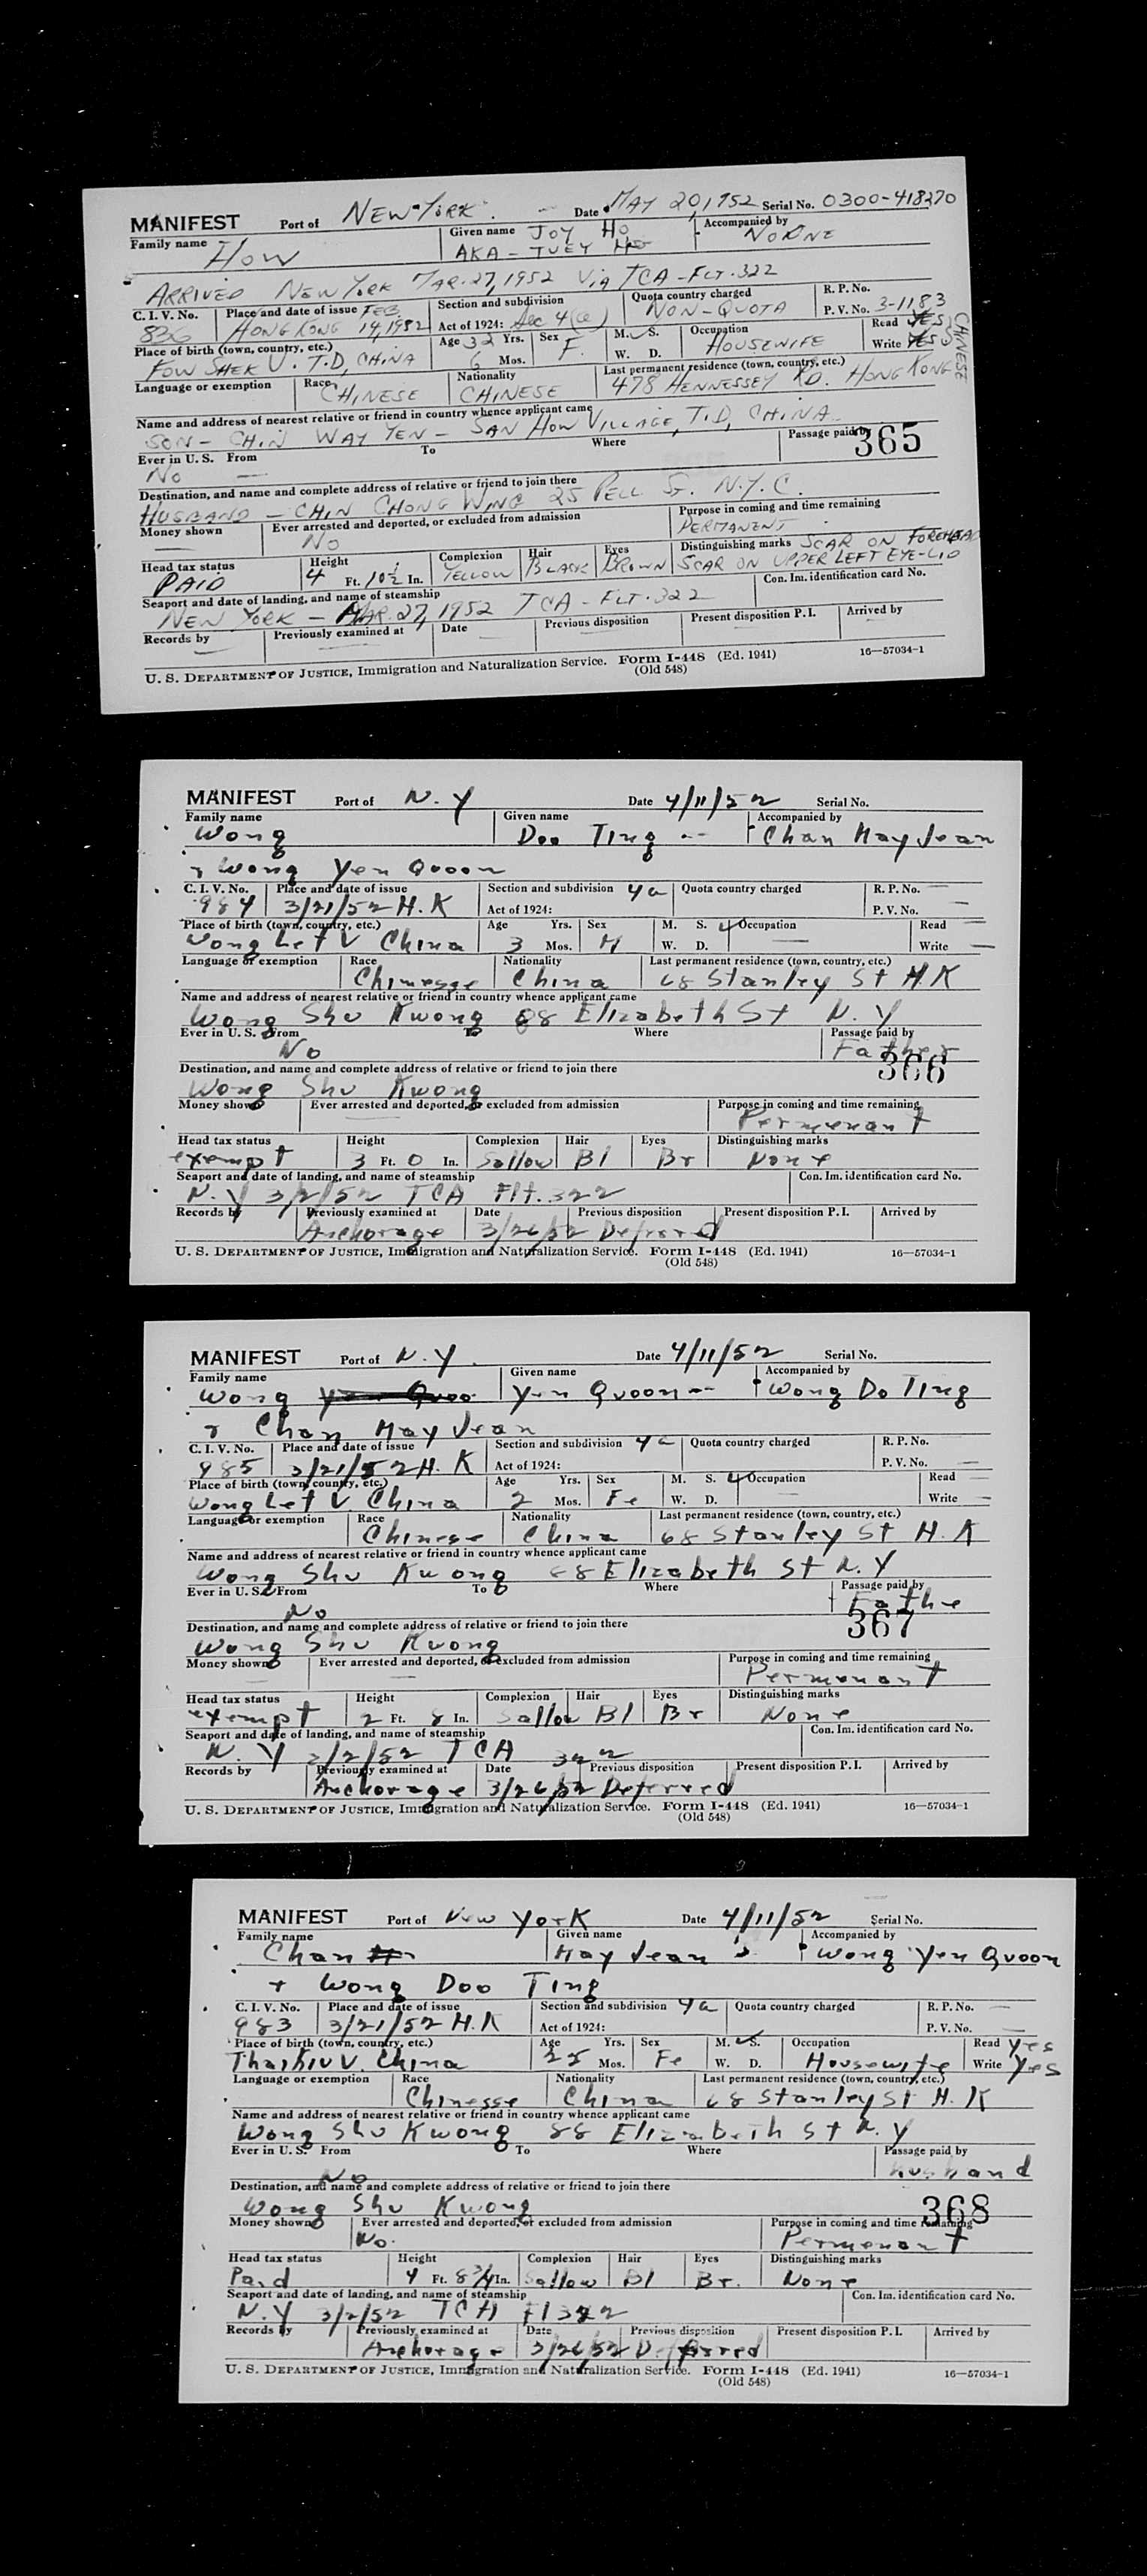 MANIFEST Port of NEW YORK. Date MAY 20, 1952 Serial No. 0300-418270
Family name HOW Given name JOY HO Accompanied by NO ONE
AKA - TUEY HO
ARRIVED NEW YORK MAR. 27, 1952 VIA TCA - FLT. 322
C. I. V. No. Place and date of issue FEB Section and subdivision Quota country charged R. P. No.
836 HONG KONG 14, 1952 Act of 1924: Sec 4(a) NON-QUOTA P. V. No. 3-1183
Place of birth (town, country, etc.) Age 32 Yrs. Sex M. S. Occupation Read YES
FOW SHEK V. T.D, CHINA 6 Mos. F. W. D. HOUSEWIFE Write YES CHINESE
Language or exemption Race Nationality Last permanent residence (town, country, etc.)
CHINESE CHINESE 478 HENNESSEY RD. HONG KONG
Name and address of nearest relative or friend in country whence applicant came
SON - CHIN WAY YEN - SAN HOW VILLAGE, T.D, CHINA.
Ever in U. S. From To Where Passage paid by 365
No —
Destination, and name and complete address of relative or friend to join there
HUSBAND - CHIN CHONG WING 25 PELL ST. N.Y.C.
Money shown Ever arrested and deported, or excluded from admission Purpose in coming and time remaining
— NO PERMANENT
Head tax status Height Complexion Hair Eyes Distinguishing marks SCAR ON FOREHEAD
PAID 4 Ft. 10½ In. YELLOW BLACK BROWN SCAR ON UPPER LEFT EYE-LID
Seaport and date of landing, and name of steamship Con. Im. identification card No.
NEW YORK - MAR. 27, 1952 TCA - FLT. 322
Records by Previously examined at Date Previous disposition Present disposition P. I. Arrived by
U. S. DEPARTMENT OF JUSTICE, Immigration and Naturalization Service. Form I-448 (Ed. 1941) 16—57034-1
(Old 548)
MANIFEST Port of N. Y Date 4/11/52 Serial No.
Family name Given name Accompanied by
Wong Doo Ting -- Chan May Jean
+ Wong Yen Quoon
C. I. V. No. Place and date of issue Section and subdivision 4a Quota country charged R. P. No. —
984 3/21/52 H. K Act of 1924: P. V. No. —
Place of birth (town, country, etc.) Age Yrs. Sex M. S. Occupation Read —
Wong Let V. China 3 Mos. M W. D. — Write —
Language or exemption Race Nationality Last permanent residence (town, country, etc.)
Chinesse China 68 Stanley St H. K
Name and address of nearest relative or friend in country whence applicant came
Wong Shu Kwong 88 Elizabeth St N. Y
Ever in U. S. From To Where Passage paid by
No Father
Destination, and name and complete address of relative or friend to join there 366
Wong Shu Kwong
Money shown Ever arrested and deported, or excluded from admission Purpose in coming and time remaining
Permenant
Head tax status Height Complexion Hair Eyes Distinguishing marks
exempt 3 Ft. 0 In. Sallow Bl Br None
Seaport and date of landing, and name of steamship Con. Im. identification card No.
N. Y 3/2/52 TCA Flt. 322
Records by Previously examined at Date Previous disposition Present disposition P. I. Arrived by
Anchorage 3/26/52 Deferred
U. S. DEPARTMENT OF JUSTICE, Immigration and Naturalization Service. Form I-448 (Ed. 1941) 16—57034-1
(Old 548)
MANIFEST Port of N. Y. Date 4/11/52 Serial No.
Family name Given name Accompanied by
Wong Yen Quoo Yen Quoon -- Wong Do Ting
+ Chan May Jean
C. I. V. No. Place and date of issue Section and subdivision 4a Quota country charged R. P. No. —
985 3/21/52 H. K Act of 1924: P. V. No. —
Place of birth (town, country, etc.) Age Yrs. Sex M. S. Occupation Read —
Wong Let V. China 2 Mos. Fe W. D. — Write —
Language or exemption Race Nationality Last permanent residence (town, country, etc.)
Chinese China 68 Stanley St H. K
Name and address of nearest relative or friend in country whence applicant came
Wong Shu Kwong 88 Elizabeth St N. Y
Ever in U. S. From To Where Passage paid by
No Fathe
Destination, and name and complete address of relative or friend to join there 367
Wong Shu Kwong
Money shown Ever arrested and deported, or excluded from admission Purpose in coming and time remaining
— Permenant
Head tax status Height Complexion Hair Eyes Distinguishing marks
exempt 2 Ft. 8 In. Sallow Bl Br None
Seaport and date of landing, and name of steamship Con. Im. identification card No.
N. Y 3/2/52 TCA 322
Records by Previously examined at Date Previous disposition Present disposition P. I. Arrived by
Anchorage 3/26/52 Deferred
U. S. DEPARTMENT OF JUSTICE, Immigration and Naturalization Service. Form I-448 (Ed. 1941) 16—57034-1
(Old 548)
MANIFEST Port of New York Date 4/11/52 Serial No.
Family name Given name Accompanied by
Chan May Jean Wong Yen Quoon
+ Wong Doo Ting
C. I. V. No. Place and date of issue Section and subdivision 4a Quota country charged R. P. No. —
983 3/21/52 H. K Act of 1924: P. V. No. —
Place of birth (town, country, etc.) Age Yrs. Sex M. S. Occupation Read Yes
Thaikiu V. China 25 Mos. Fe W. D. Housewife Write Yes
Language or exemption Race Nationality Last permanent residence (town, country, etc.)
Chinesse China 68 Stanley St H. K
Name and address of nearest relative or friend in country whence applicant came
Wong Shu Kwong 88 Elizabeth St N. Y
Ever in U. S. From To Where Passage paid by
No husband
Destination, and name and complete address of relative or friend to join there
Wong Shu Kwong 368
Money shown Ever arrested and deported, or excluded from admission Purpose in coming and time remaining
No. Permenant
Head tax status Height Complexion Hair Eyes Distinguishing marks
Paid 4 Ft. 8 3/4 In. Sallow Bl Br. None
Seaport and date of landing, and name of steamship Con. Im. identification card No.
N. Y 3/2/52 TCA Fl 322
Records by Previously examined at Date Previous disposition Present disposition P. I. Arrived by
Anchorage 3/26/52 Deferred
U. S. DEPARTMENT OF JUSTICE, Immigration and Naturalization Service. Form I-448 (Ed. 1941) 16—57034-1
(Old 548)